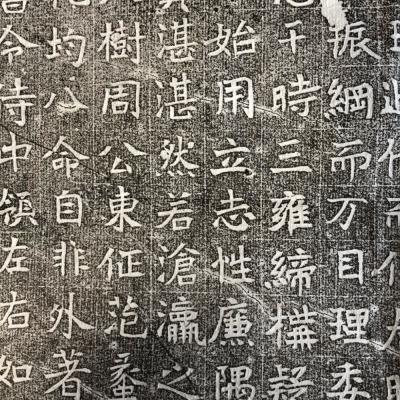 振綱而万目理委
干時三雍締構疑
始用立志性廉隅
湛湛然若滄瀛之
樹周公東征范蠡
均八命自非外著
令侍中領左右如